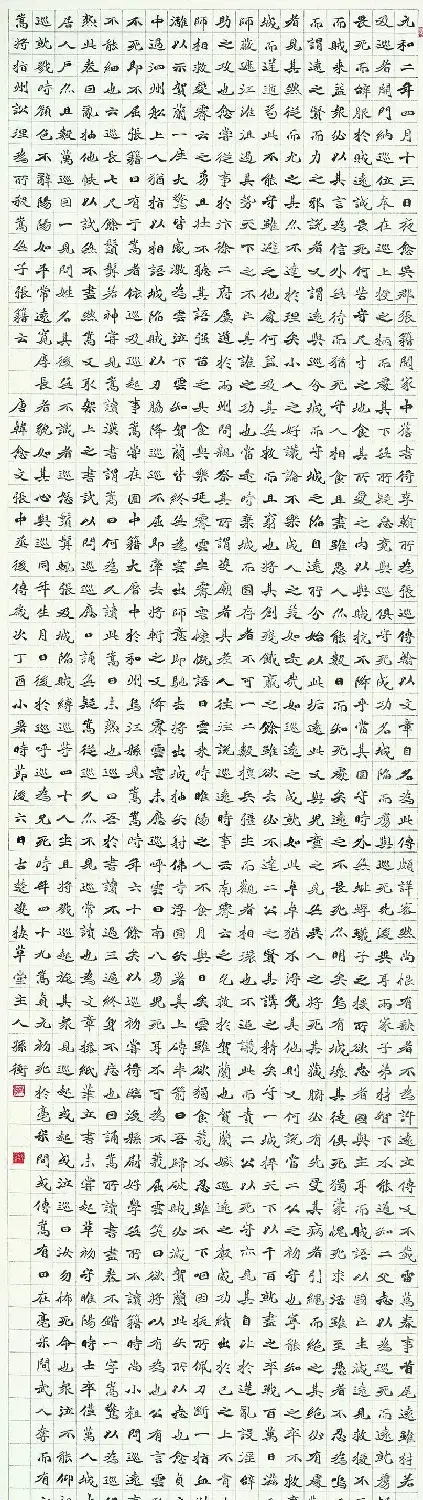 元和二年四月十三日夜愈與吳郡張籍閱家中舊書得李翰所為張巡傳翰以文章自名為此傳頗詳密然尚恨有缺者不為許遠立傳又不載雷萬春事首尾遠雖材若不
及巡者開門納巡位本在巡上授之柄而處其下無所疑忌竟與巡俱守死成功名城陷而虜與巡死先後異耳兩家子弟材智下不能通知二父志以為巡死而遠就虜疑
畏死而辭服於賊遠誠畏死何苦守尺寸之地食其所愛之肉以與賊抗而不降乎當其圍守時外無蚍蜉蟻子之援所欲忠者國與主耳而賊語以國亡主滅遠見救援不至
而賊來益眾必以其言為信外無待而猶死守人相食且盡雖愚人亦能數日而知死處矣遠之不畏死亦明矣烏有城壞其徒俱死獨蒙愧恥求活雖至愚者不忍為嗚呼
而謂遠之賢而為之邪說者又謂遠與巡分城而守城之陷自遠所分始以此詬遠此又與兒童之見無異人之將死其藏腑必有先受其病者引繩而絕之其絕必有處觀
者見其然從而尤之其亦不達於理矣小人之好議論不樂成人之美如是哉如巡遠之所成就如此卓卓猶不得免其他則又何說當二公之初守也寧能知人之卒不救棄
城而逆遁苟此不能守雖避之他處何益及其無救而且窮也將其創殘餓羸之餘雖欲去必不達二公之賢其講之精矣守一城捍天下以千百就盡之卒戰百萬日滋之
師蔽遮江淮沮遏其勢天下之不亡其誰之功也當是時棄城而圖存者不可一二數擅強兵坐而觀者相環也不追議此而責二公以死守亦見其自比於逆亂設淫辭而
助之攻也愈嘗從事於汴徐二府屢道於兩州間親祭於其所謂雙廟者其老人往往說巡遠時事云南霽雲之乞救於賀蘭也賀蘭嫉巡遠之聲威功績出己上不肯出
師相救愛霽雲之勇且壯不聽其語強留之具食與樂延霽雲坐霽雲慷慨語曰雲來時睢陽之人不食月餘日矣雲雖欲獨食義不忍雖食且不下咽因拔所佩刀斷一指血淋
漓以示賀蘭一座大驚皆感激為雲泣下雲知賀蘭終無為雲出師意即馳去將出城抽矢射佛寺浮圖矢著其上磚半箭曰吾歸破賊必滅賀蘭此矢所以志也愈貞元
中過泗州船上人猶指以相語城陷賊以刃脅降巡巡不屈即牽去將斬之又降霽雲雲未應巡呼雲曰南八男兒死耳不可為不義屈雲笑曰欲將以有為也公有言雲敢
不死即不屈張籍曰有于嵩者少依於巡及巡起事嵩嘗在圍中籍大曆中於和州烏江縣見嵩嵩時年六十餘矣以巡初嘗得臨渙縣尉好學無所不讀籍時尚小粗問巡遠事
不能細也云巡長七尺餘鬚髯若神嘗見嵩讀漢書謂嵩曰何為久讀此嵩曰未熟也巡曰吾於書讀不過三遍終身不忘也因誦嵩所讀書盡卷不錯一字嵩驚以為巡偶
熟此卷因亂抽他帙以試無不盡然嵩又取架上諸書試以問巡巡應口誦無疑嵩從巡久亦不見巡常讀書也為文章操紙筆立書未嘗起草初守睢陽時士卒僅萬人城中
居人戶亦且數萬巡因一見問姓名其後無不識者巡怒鬚髯輒張及城陷賊縛巡等四十人坐且將戮巡起旋其眾見巡起或起或泣巡曰汝勿怖死命也眾泣不能仰視
巡就戮時顏色不亂陽陽如平常遠寬厚長者貌如其心與巡同年生月日後於巡呼巡為兄死時年四十九嵩貞元初死於亳宋間或傳嵩有田在亳宋間武人奪而有之
嵩將詣州訟理為所殺嵩無子張籍云 唐韓愈文張中丞後傳歲次丁酉小暑時節後六日古楚草堂主人孫衛